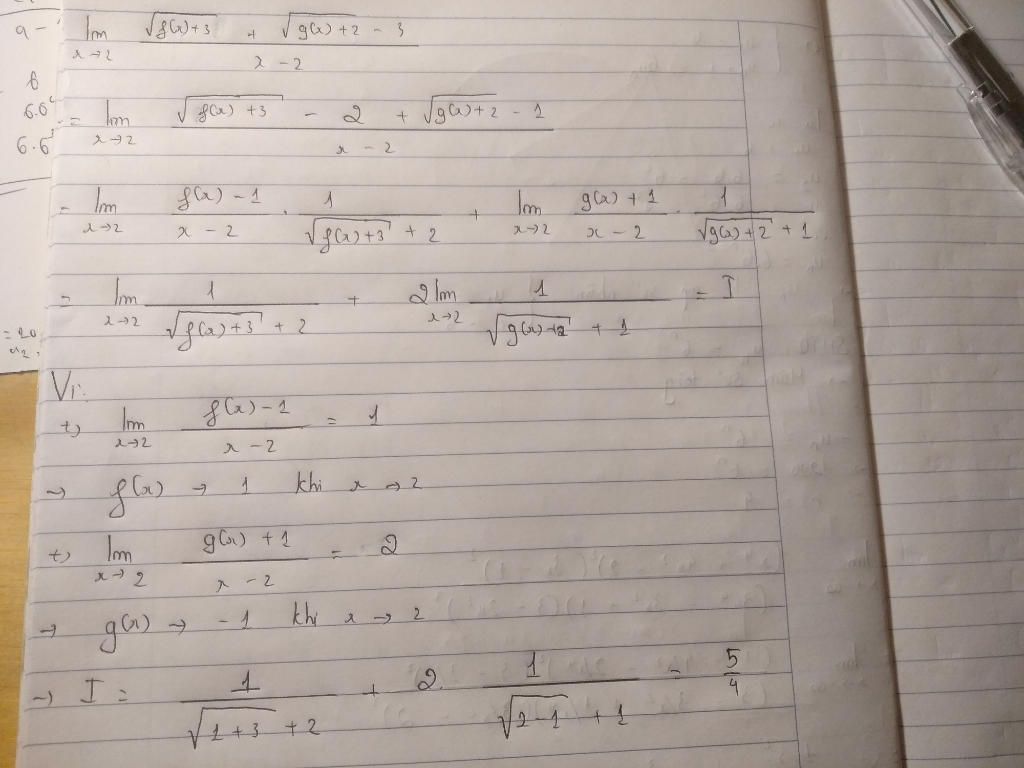 a - lim x→2 (√(f(x)+3) + √(g(x)+2) - 3)/(x - 2)
= lim x→2 (√(f(x)+3) - 2 + √(g(x)+2) - 1)/(x - 2)
= lim x→2 (f(x) - 1)/(x - 2) . 1/(√(f(x)+3) + 2) + lim x→2 (g(x) + 1)/(x - 2) . 1/(√(g(x)+2) + 1)
= lim x→2 1/(√(f(x)+3) + 2) + 2 lim x→2 1/(√(g(x)+2) + 1) = I
Vì:
+, lim x→2 (f(x) - 1)/(x - 2) = 1
→ f(x) → 1 khi x → 2
+, lim x→2 (g(x) + 1)/(x - 2) = 2
→ g(x) → -1 khi x → 2
→ I = 1/(√(1+3) + 2) + 2. 1/(√(2-1) + 1) = 5/4